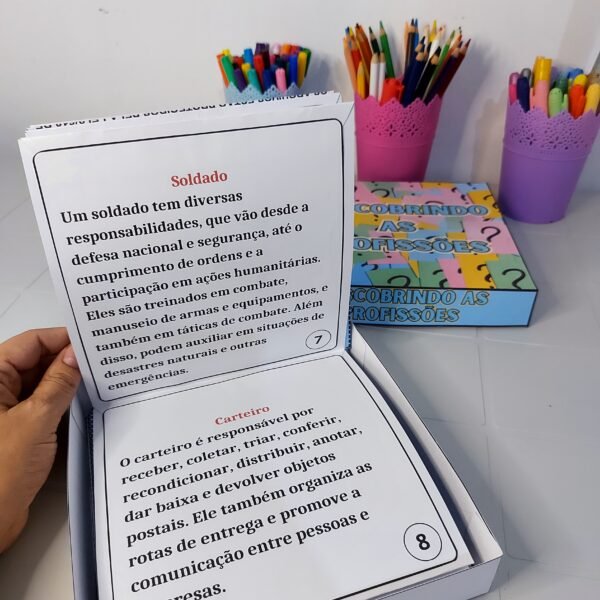 Soldado
Um soldado tem diversas
responsabilidades, que vão desde a
defesa nacional e segurança, até o
cumprimento de ordens e a
participação em ações humanitárias.
Eles são treinados em combate,
manuseio de armas e equipamentos, e
também em táticas de combate. Além
disso, podem auxiliar em situações de
desastres naturais e outras
emergências.
7
Carteiro
O carteiro é responsável por
receber, coletar, triar, conferir,
recondicionar, distribuir, anotar,
dar baixa e devolver objetos
postais. Ele também organiza as
rotas de entrega e promove a
comunicação entre pessoas e
presas.
8
COBRINDO
AS
OFISSÕES
SCOBRINDO AS
PROFISSÕES